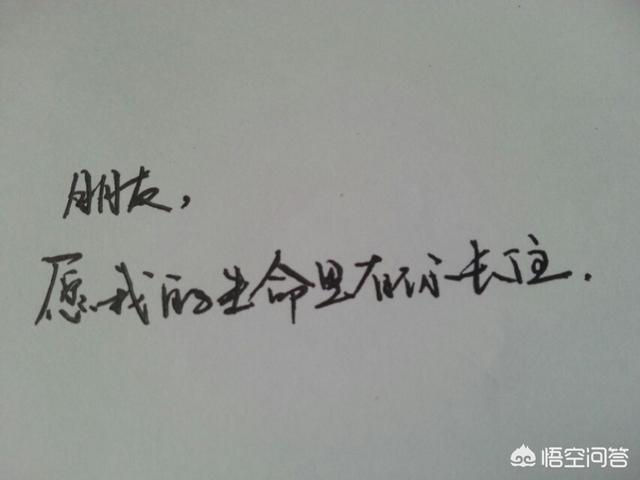 朋友，
愿我的生命里有你长住.
悟空问答